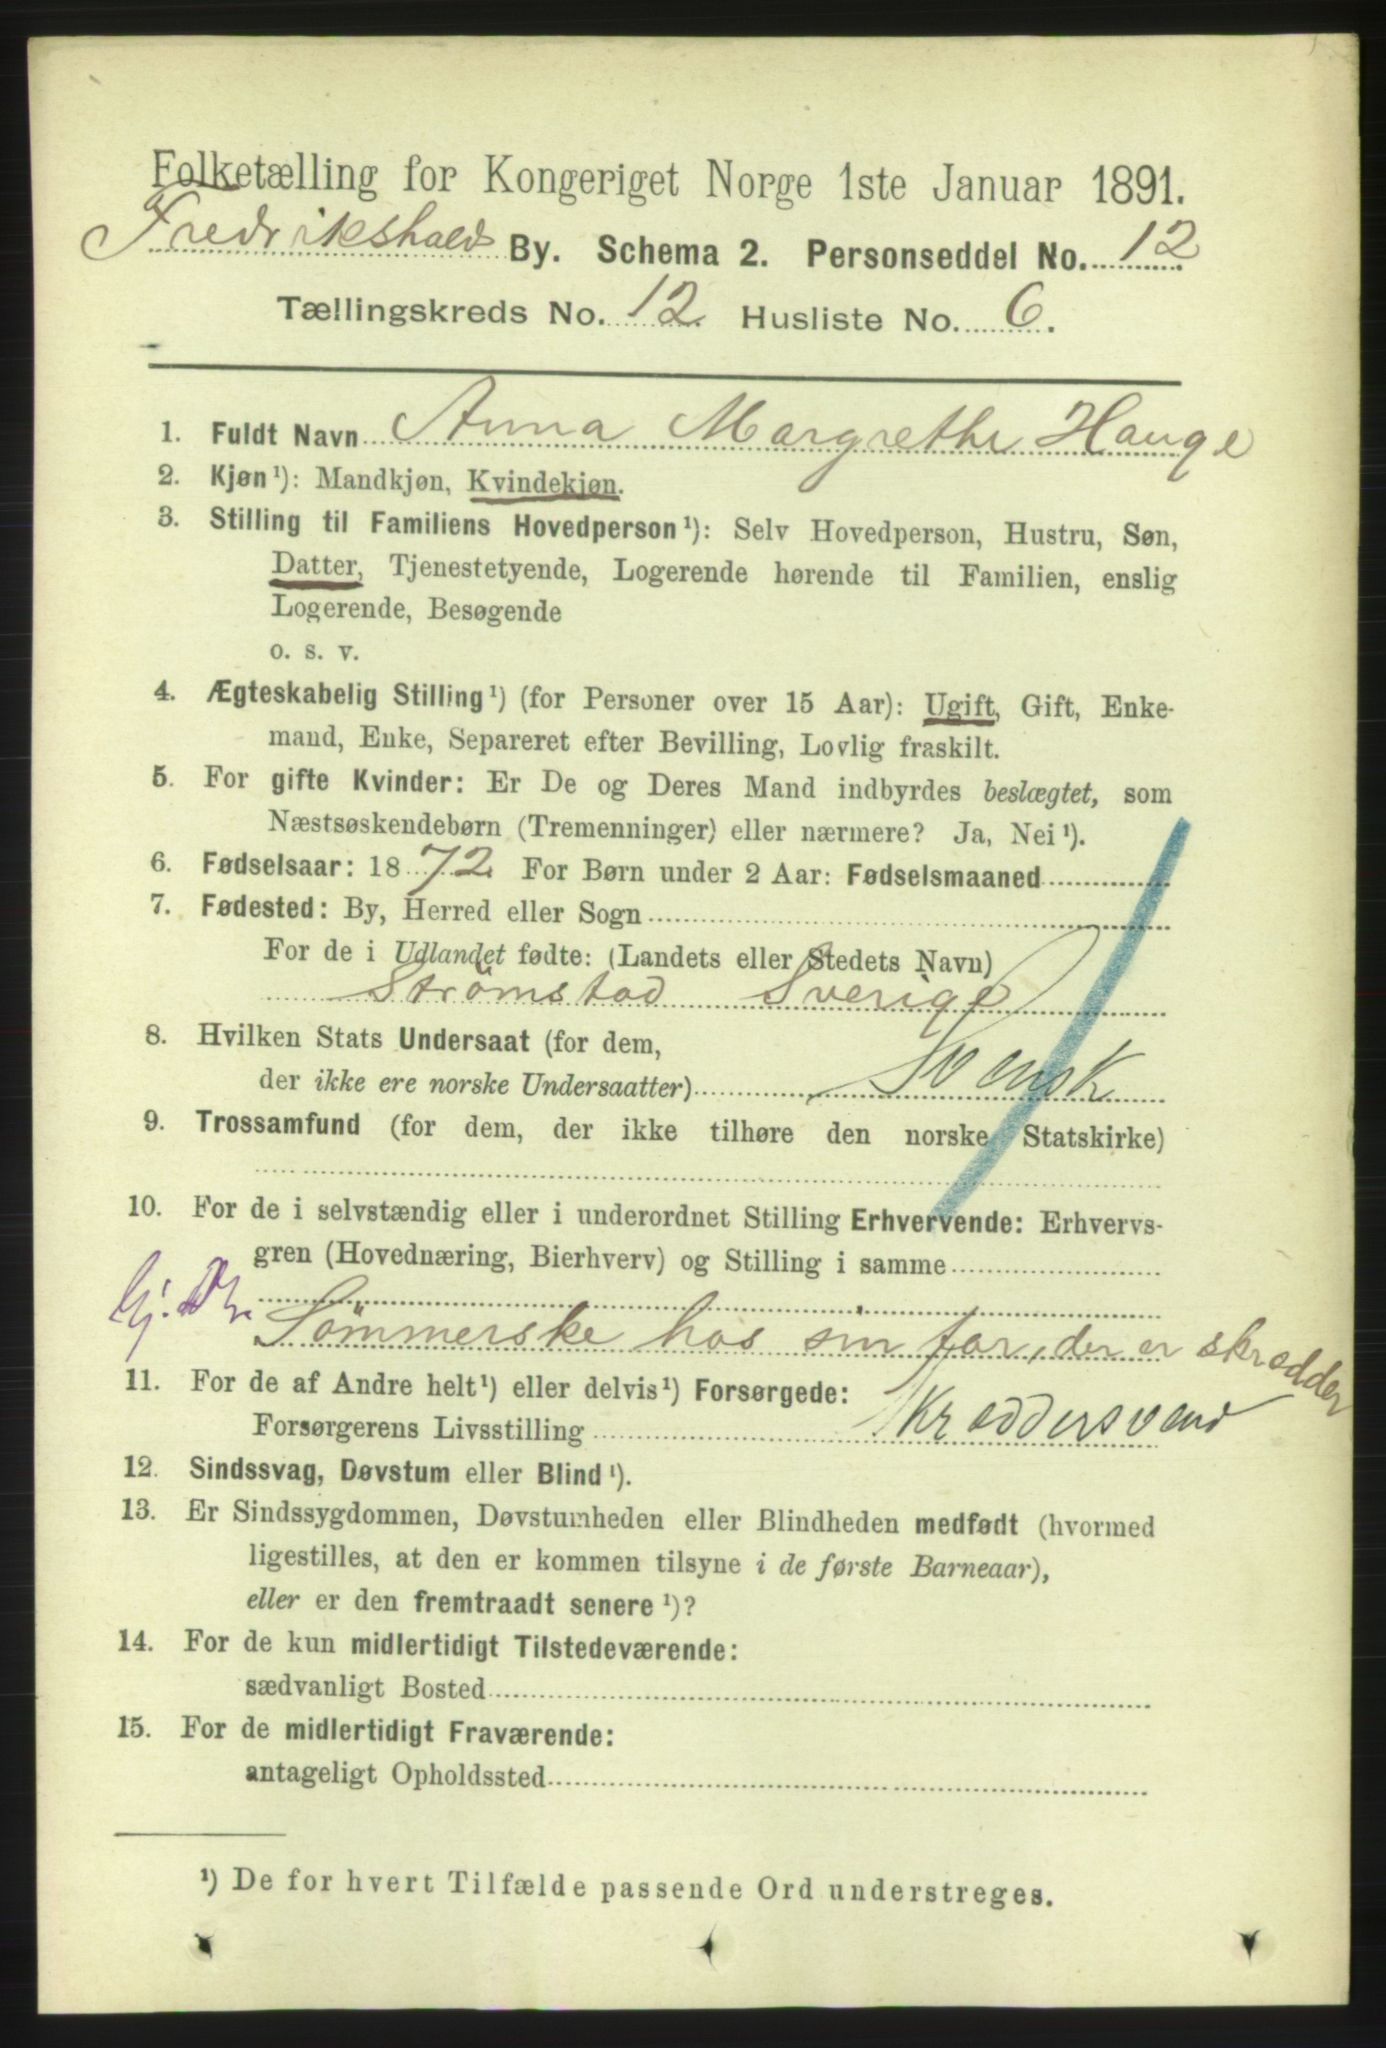 Folketælling for Kongeriget Norge 1ste Januar 1891.
Fredrikshalds By. Schema 2. Personseddel No. 12
Tællingskreds No. 12. Husliste No. 6.
1. Fuldt Navn Anna Margrethe Hauge
2. Kjøn¹): Mandkjøn, Kvindekjøn.
3. Stilling til Familiens Hovedperson¹): Selv Hovedperson, Hustru, Søn,
Datter, Tjenestetyende, Logerende hørende til Familien, enslig
Logerende, Besøgende
o. s. v.
4. Ægteskabelig Stilling¹) (for Personer over 15 Aar): Ugift, Gift, Enke-
mand, Enke, Separeret efter Bevilling, Lovlig fraskilt.
5. For gifte Kvinder: Er De og Deres Mand indbyrdes beslægtet, som
Næstsøskendebørn (Tremenninger) eller nærmere? Ja, Nei¹).
6. Fødselsaar: 1872. For Børn under 2 Aar: Fødselsmaaned
7. Fødested: By, Herred eller Sogn
For de i Udlandet fødte: (Landets eller Stedets Navn)
Strömstad Sverige
8. Hvilken Stats Undersaat (for dem,
der ikke ere norske Undersaatter) Svensk
9. Trossamfund (for dem, der ikke tilhøre den norske Statskirke)
10. For de i selvstændig eller i underordnet Stilling Erhvervende: Erhvervs-
gren (Hovednæring, Bierhverv) og Stilling i samme
Sömmerske hos sin far, der er skrædder
11. For de af Andre helt¹) eller delvis¹) Forsørgede:
Forsørgerens Livsstilling Skræddersvend
12. Sindssvag, Døvstum eller Blind¹).
13. Er Sindssygdommen, Døvstumheden eller Blindheden medfødt (hvormed
ligestilles, at den er kommen tilsyne i de første Barneaar),
eller er den fremtraadt senere¹)?
14. For de kun midlertidigt Tilstedeværende:
sædvanligt Bosted
15. For de midlertidigt Fraværende:
antageligt Opholdssted
¹) De for hvert Tilfælde passende Ord understreges.